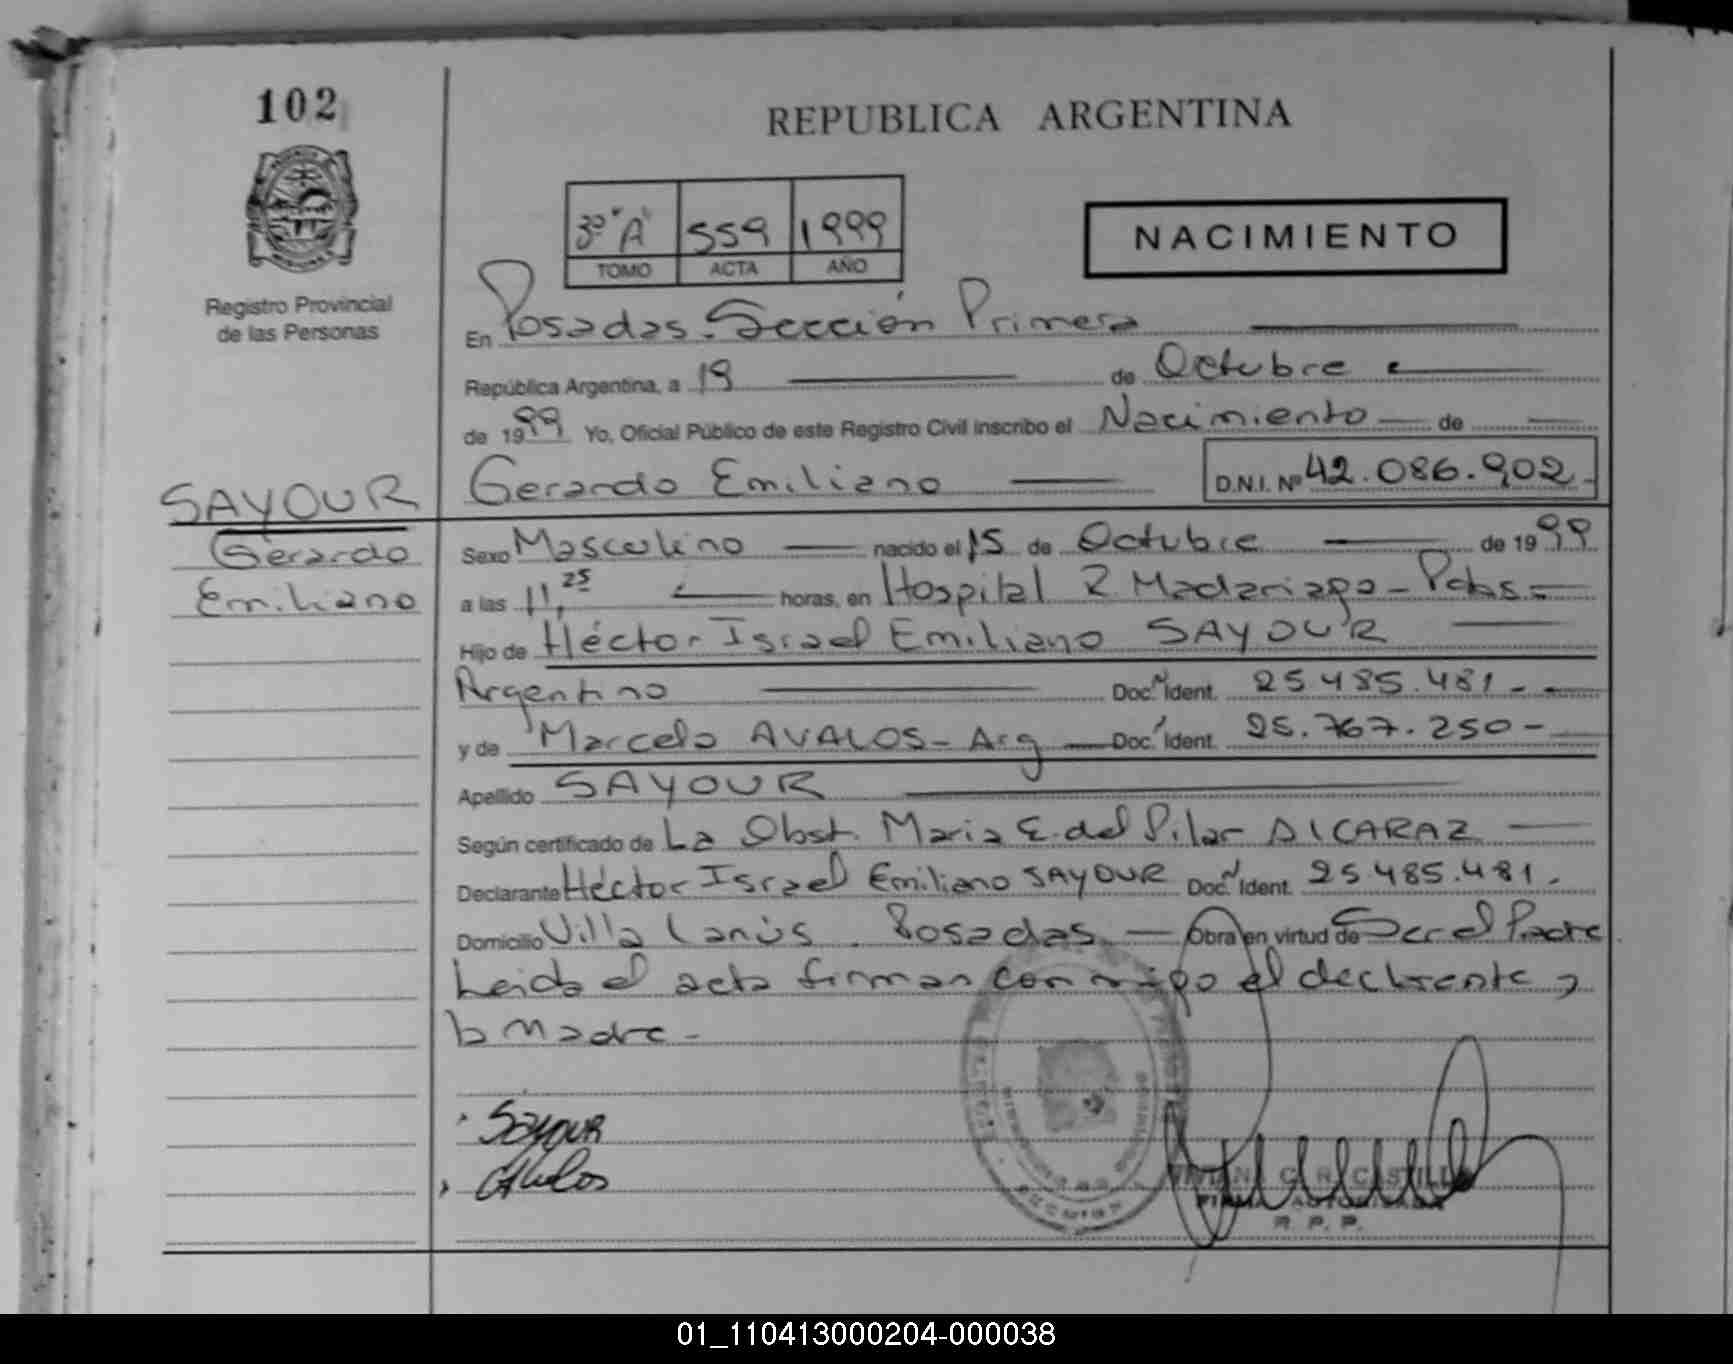 102
REPUBLICA ARGENTINA
3º "A" 559 1999
TOMO ACTA AÑO
NACIMIENTO
Registro Provincial
de las Personas
En Posadas. Sección Primera
República Argentina, a 19 de Octubre
de 1999 Yo, Oficial Público de este Registro Civil inscribo el Nacimiento de
SAYOUR
Gerardo
Emiliano
Gerardo Emiliano D.N.I. Nº 42.086.902.-
Sexo Masculino nacido el 15 de Octubre de 1999
a las 11,25 horas, en Hospital R. Madariaga - Pdas.-
Hijo de Héctor Israel Emiliano SAYOUR
Argentino Doc. Ident. 25.485.481.-
y de Marcela AVALOS - Arg Doc. Ident. 25.767.250-
Apellido SAYOUR
Según certificado de La Obst. Maria E. del Pilar ALCARAZ
Declarante Héctor Israel Emiliano SAYOUR Doc. Ident. 25.485.481.
Domicilio Villa Lanús. Posadas. Obra en virtud de Ser el Padre.
Leida el acta firman conmigo el declarante y
la Madre -
Sayour
Avalos
C. R. CASTILLO
FIRMA AUTORIZADA
R. P. P.
01_110413000204-000038